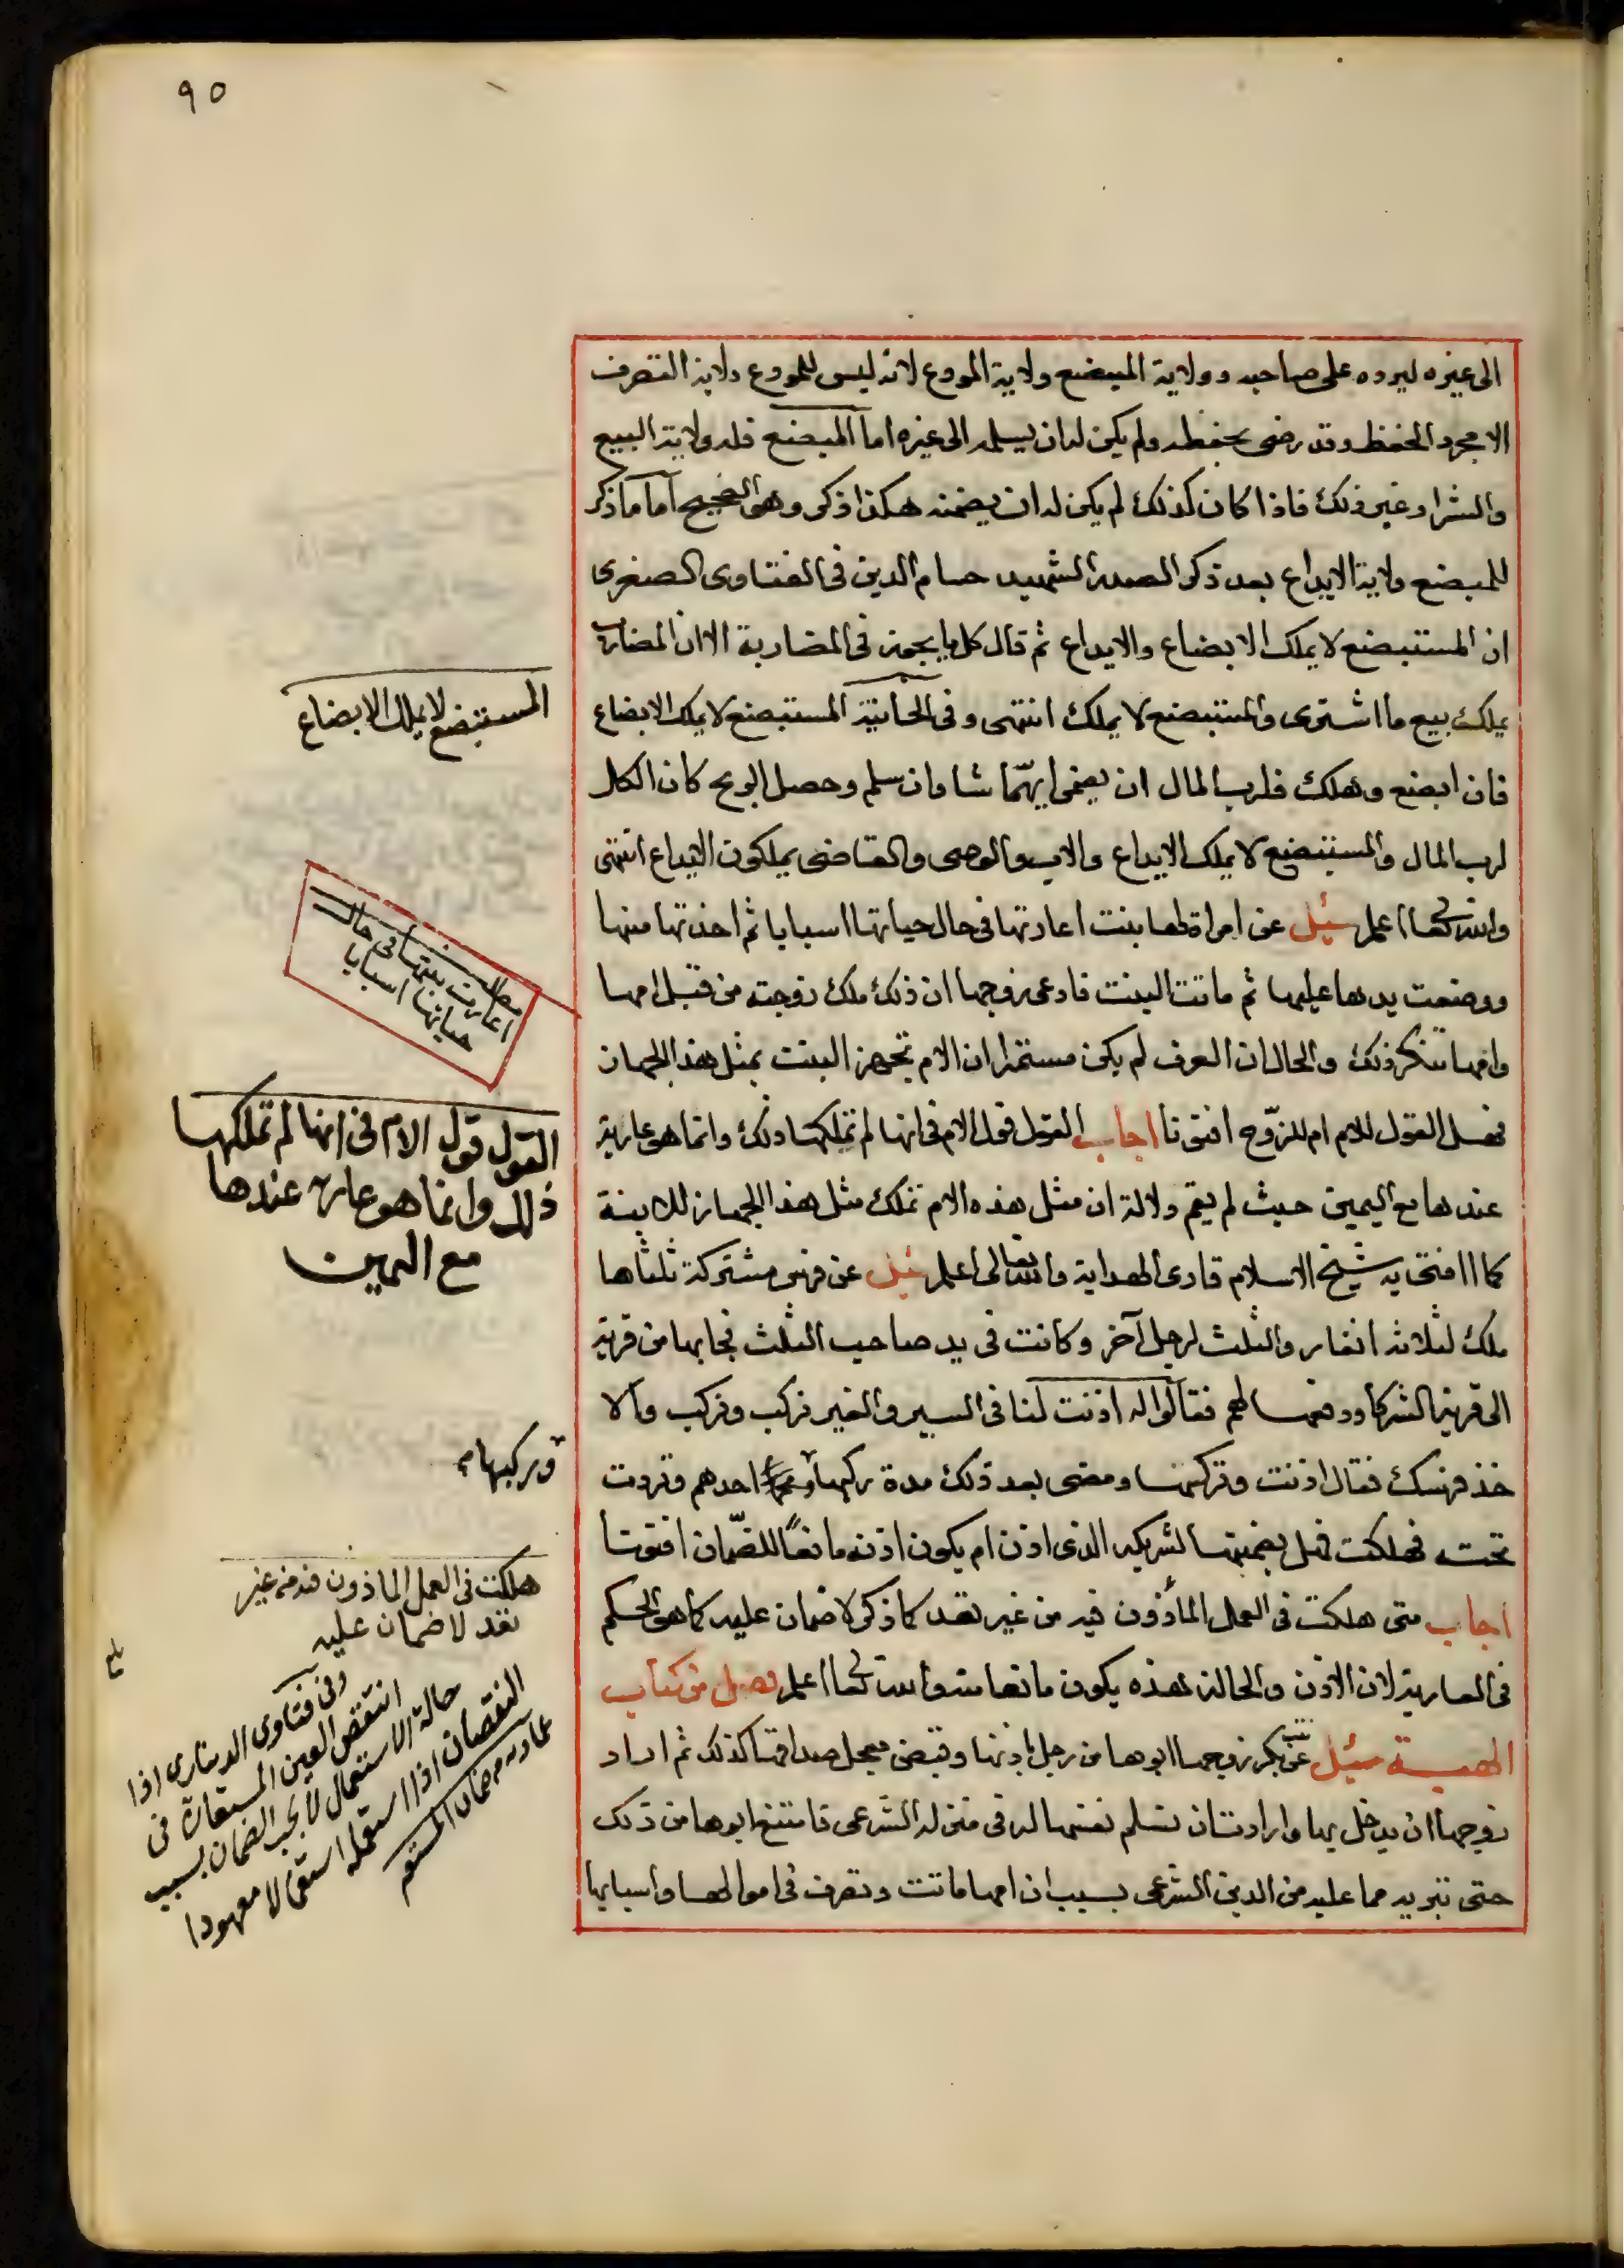 ٩٥
الى غيره ليرده على صاحبه وولاية المبضع ولاية المودع لانه ليس للمودع ولاية التصرف
الا مجرد الحفظ وقد رضى بحفظه ولم يكن له ان يسلمه الى غيره اما المبضع فله ولاية البيع
والشرا وغير ذلك فاذا كان كذلك لم يكن له ان يضمنه هكذا ذكر وهو الصحيح اما ما ذكر
للمبضع ولاية الايداع بعد ذكر الصدر الشهيد حسام الدين فى الفتاوى الصغرى
ان المستبضع لا يملك الابضاع والايداع ثم قال كل ما يجوز فى المضاربة الا ان المضارب
يملك بيع ما اشترى والمستبضع لا يملك انتهى وفى الخانية المستبضع لا يملك الابضاع
فان ابضع وهلك فلرب المال ان يضمن ايهما شا وان سلم وحصل الربح كان الكل
لرب المال والمستبضع لا يملك الايداع والاب والوصى والقاضى يملكون الايداع انتهى
والله تعالى اعلم سئل عن امراة لها بنت اعارتها فى حال حياتها اسبابا ثم اخذتها منها
ووضعت يدها عليها ثم ماتت البنت فادعى زوجها ان ذلك ملك زوجته من قبل امها
وامها تنكر ذلك والحال ان العرف لم يكن مستمرا ان الام تجهز البنت بمثل هذا الجهاز
فهل القول للام ام للزوج افتونا اجاب القول قول الام فى انها لم تملكها ذلك وانما هو عارية
عندها مع اليمين حيث لم يقم دلالة ان مثل هذه الام تملك مثل هذا الجهاز للابنة
كما افتى به شيخ الاسلام قارى الهداية والله تعالى اعلم سئل عن فرس مشتركة ثلثاها
ملك لثلاثة انفار والثلث لرجل آخر وكانت فى يد صاحب الثلث فجا بها من قرية
الى قرية الشركا ودفعها لهم فقالوا له اذنت لنا فى السير والغير نركب ونركب والا
خذ فرسك فقال اذنت وتركها ومضى بعد ذلك مدة ركبها احدهم وتردت
تحته فهلكت فهل يضمنها لشريكه الذى اذن ام يكون اذنه مانعا للضمان افتونا
اجاب متى هلكت فى العمل المأذون فيه من غير تعد كما ذكر لا ضمان عليه كما هو الحكم
فى العارية لان الاذن والحالة هذه يكون مانعا منه والله تعالى اعلم فصل من كتاب
الهبة سئل عن بنت بكر زوجها ابوها من رجل باذنها وقبض معجل صداقها كذلك ثم اراد
زوجها ان يدخل بها وارادت ان تسلم نفسها له فى منزله الشرعى فامتنع ابوها من ذلك
حتى تبريه مما عليه من الدين الشرعى بسبب ان امها ماتت وتصرف فى اموالها واسبابها
المستبضع لا يملك الابضاع
مطلب
اعارت بنتها فى حال
حياتها اسبابا
القول قول الام فى انها لم تملكها
ذلك وانما هو عارية عندها
مع اليمين
وركبها
هلكت فى العمل الماذون فيه من غير
تعد لا ضمان عليه
وفى فتاوى الدينارى اذا
انتقص العين المستعارة فى
حالة الاستعمال لا يجب الضمان بسبب
النقصان اذا استعمله استعمالا معهودا
عماديه من ضمان المستعير